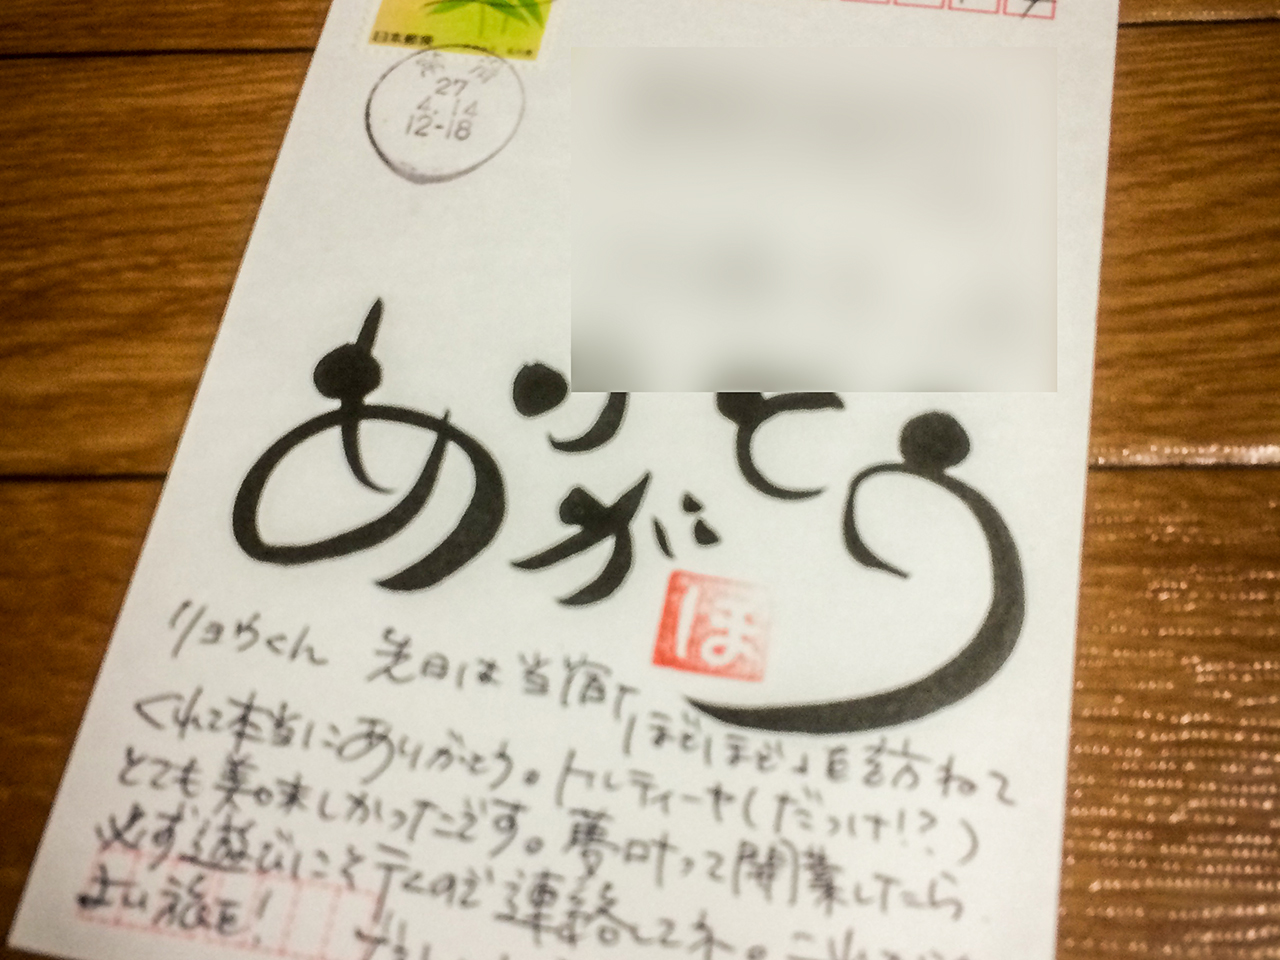 日本郵便
27
4.14
12-18
ありがとう
ほ
リョウくん 先日は当宿「ほどほど」を訪ねて
くれて本当にありがとう。トルティーヤ(だっけ!?)
とても美味しかったです。夢叶って開業したら
必ず遊びに行くので連絡してネ。
よい旅を!